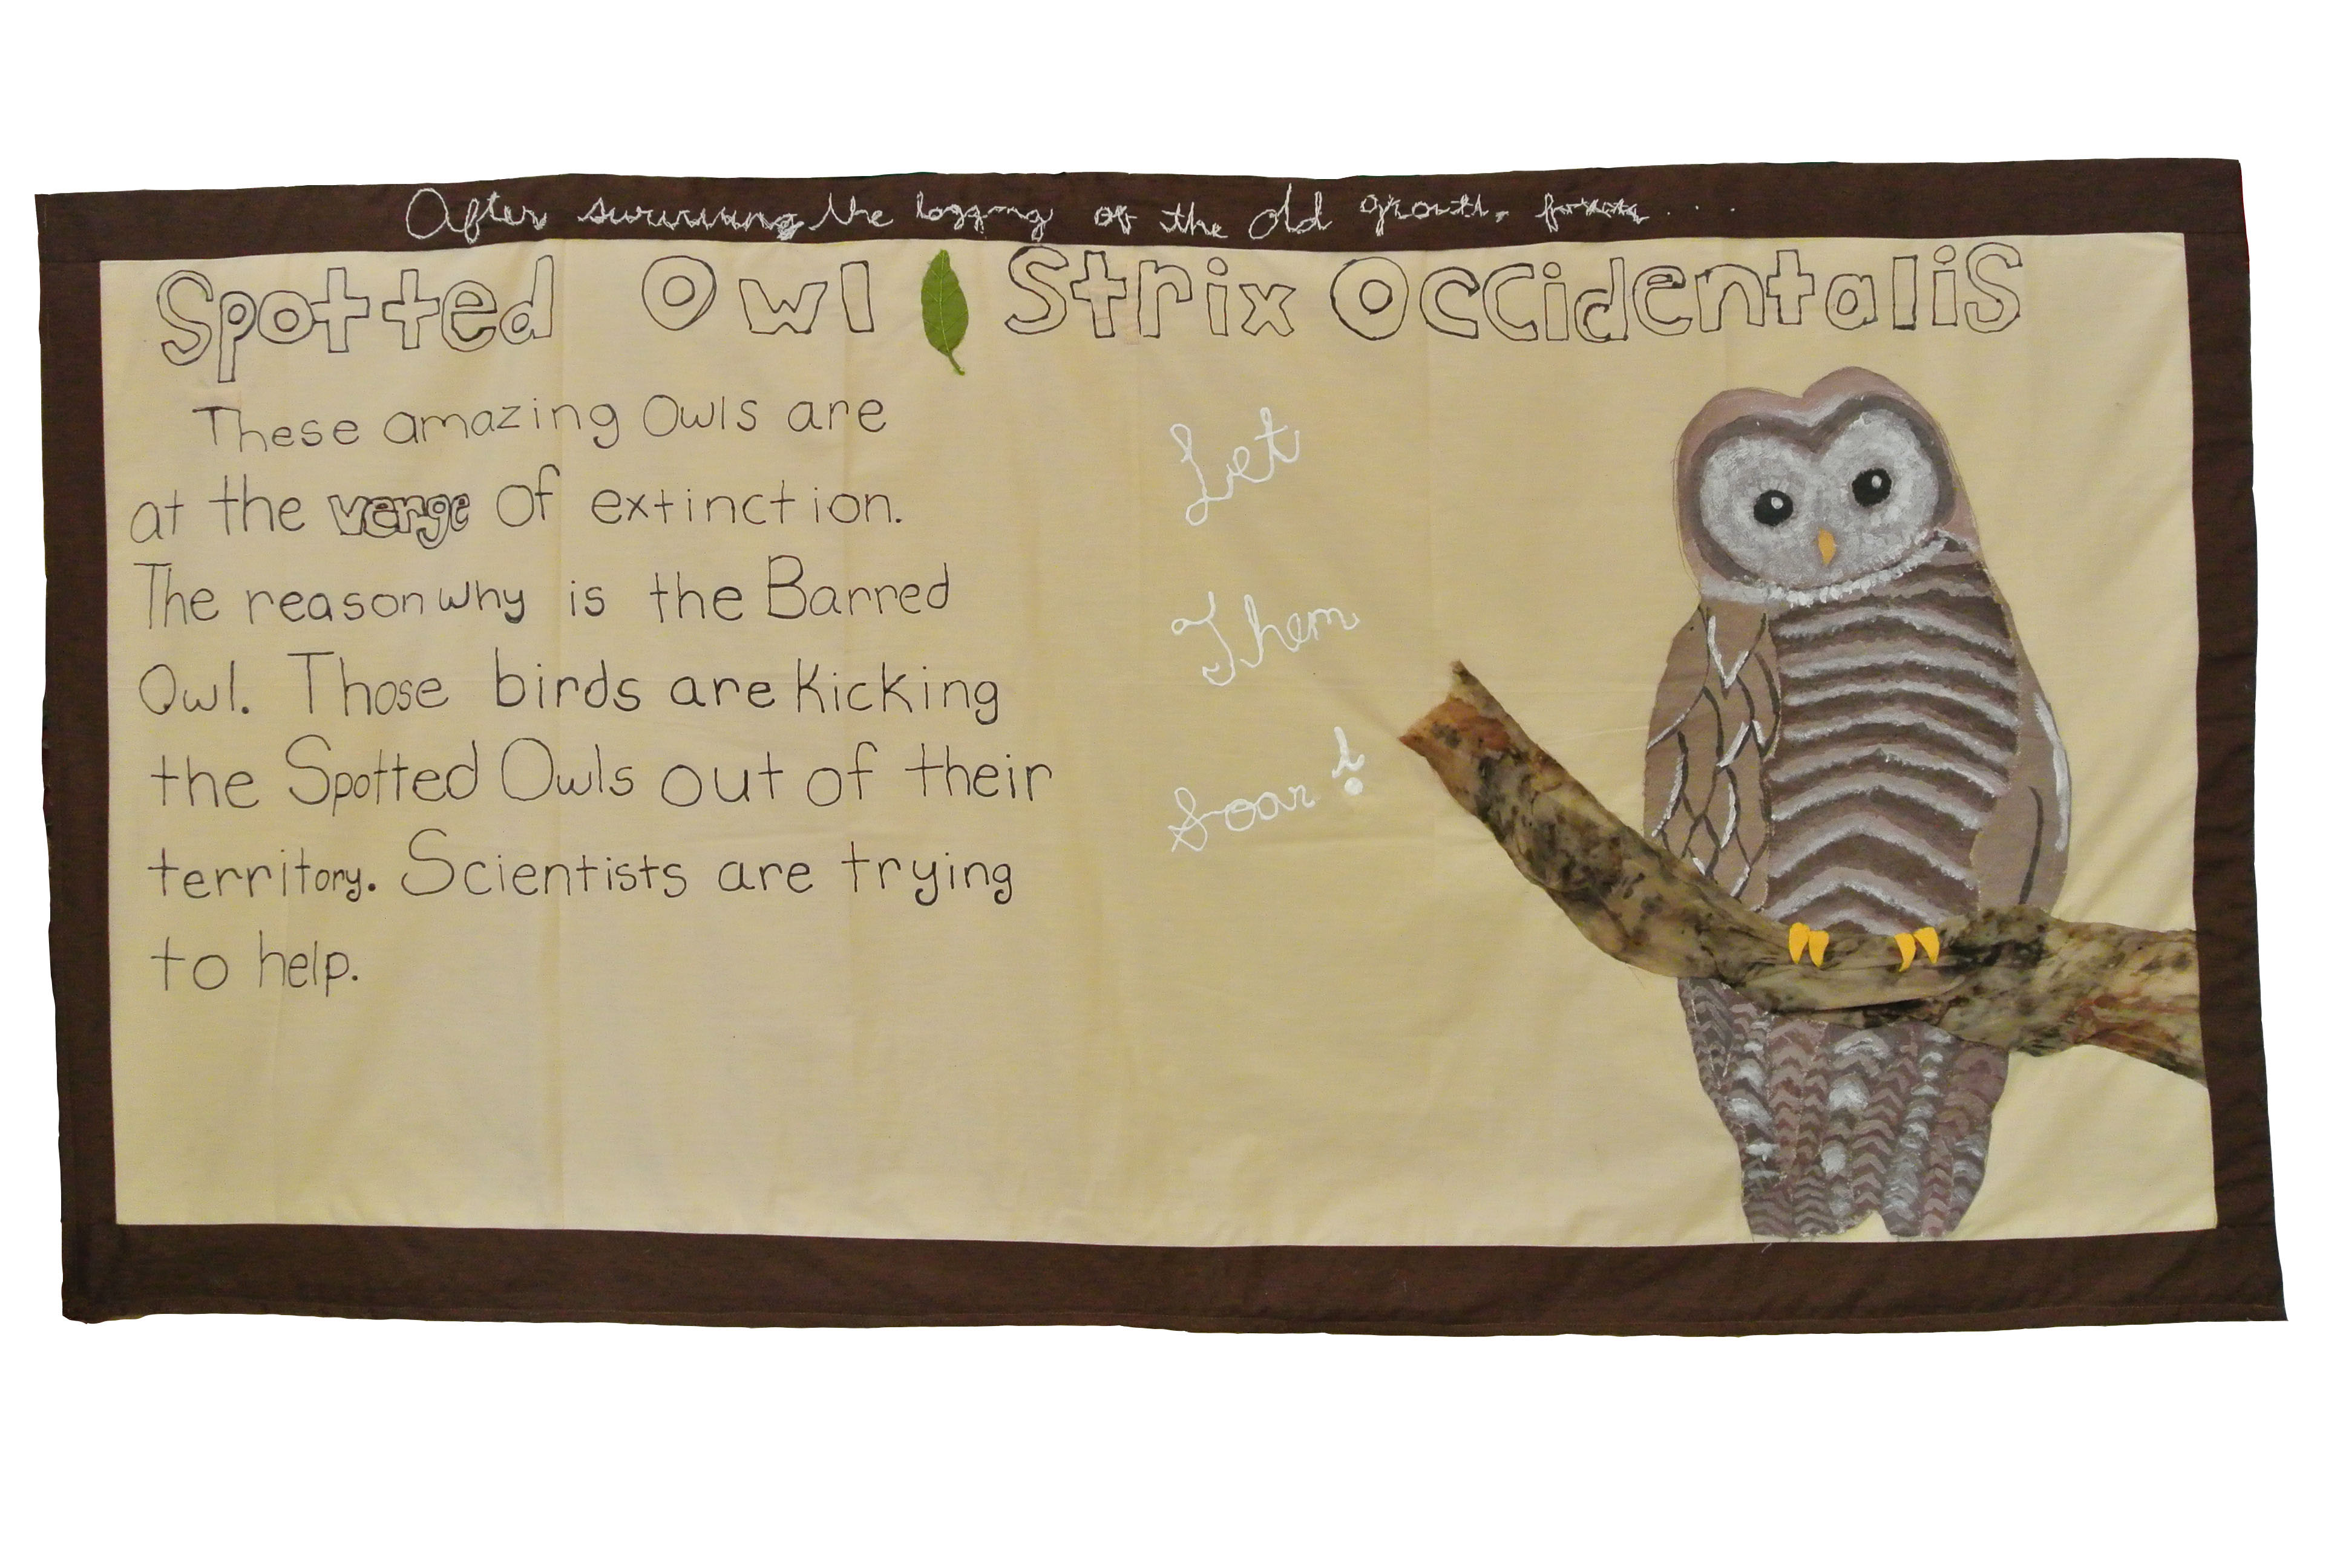 After surviving the logging of the old growth forest....
Spotted Owl Strix Occidentalis
These amazing Owls are
at the verge of extinction.
The reason why is the Barred
Owl. Those birds are Kicking
the Spotted Owls out of their
territory. Scientists are trying
to help.
Let
Them
Soar!